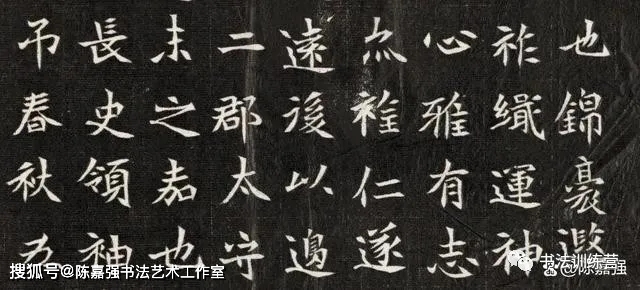 也錦
祚運神
心雅有志
仁遂
遠後以邊
二郡太守
未之嘉也
長史領神
吊春秋五
搜狐号@陈嘉强书法艺术工作室
书法训练营
@陈嘉强